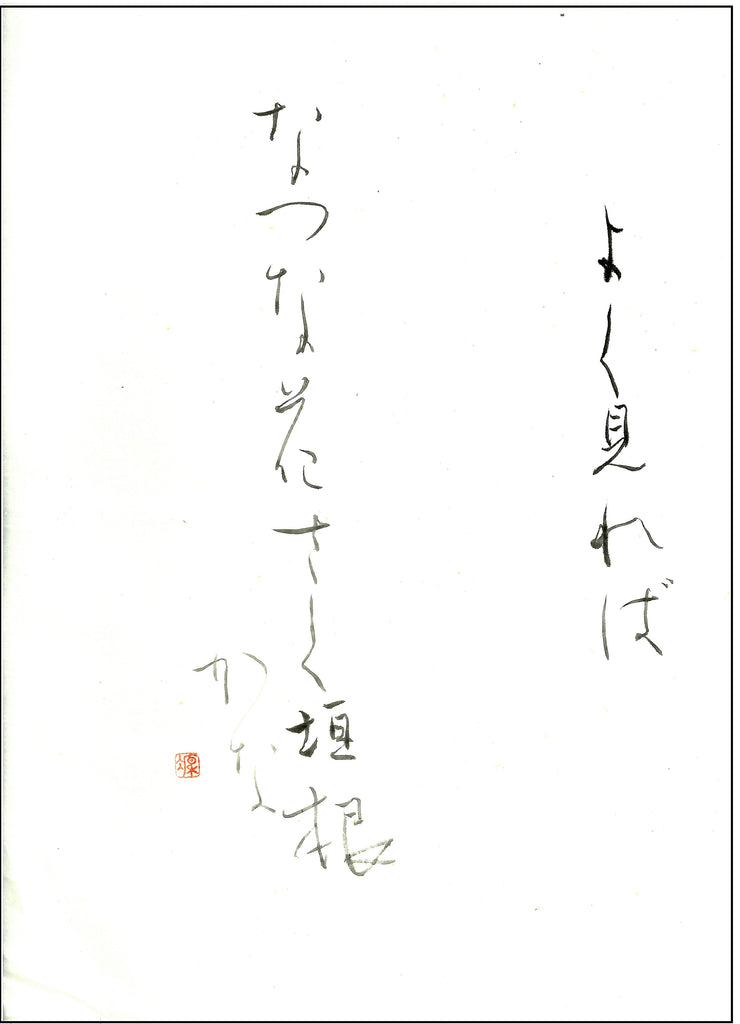 よく見れば
なつな花にさく垣根
かな